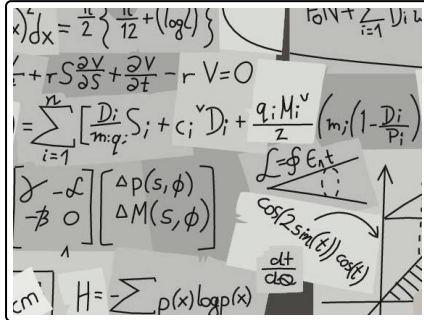 x)²dx = π/2 { π/12 + (log2) }
PoN + ∑ Di
i=1
+ rS ∂V/∂S + ∂V/∂t - r V = 0
= ∑ⁿᵢ₌₁ [ Di/miqi Si + ciᵛDi + qiMiᵛ/2 (mi(1 - Di/Pi)
[γ -ℒ] [Δp(s,ϕ)]
[-β 0] [ΔM(s,ϕ)]
ℒ=∮ Eₙt
cos(2sin(t))cos(t)
dt
cm
H = -∑ p(x)logp(x)